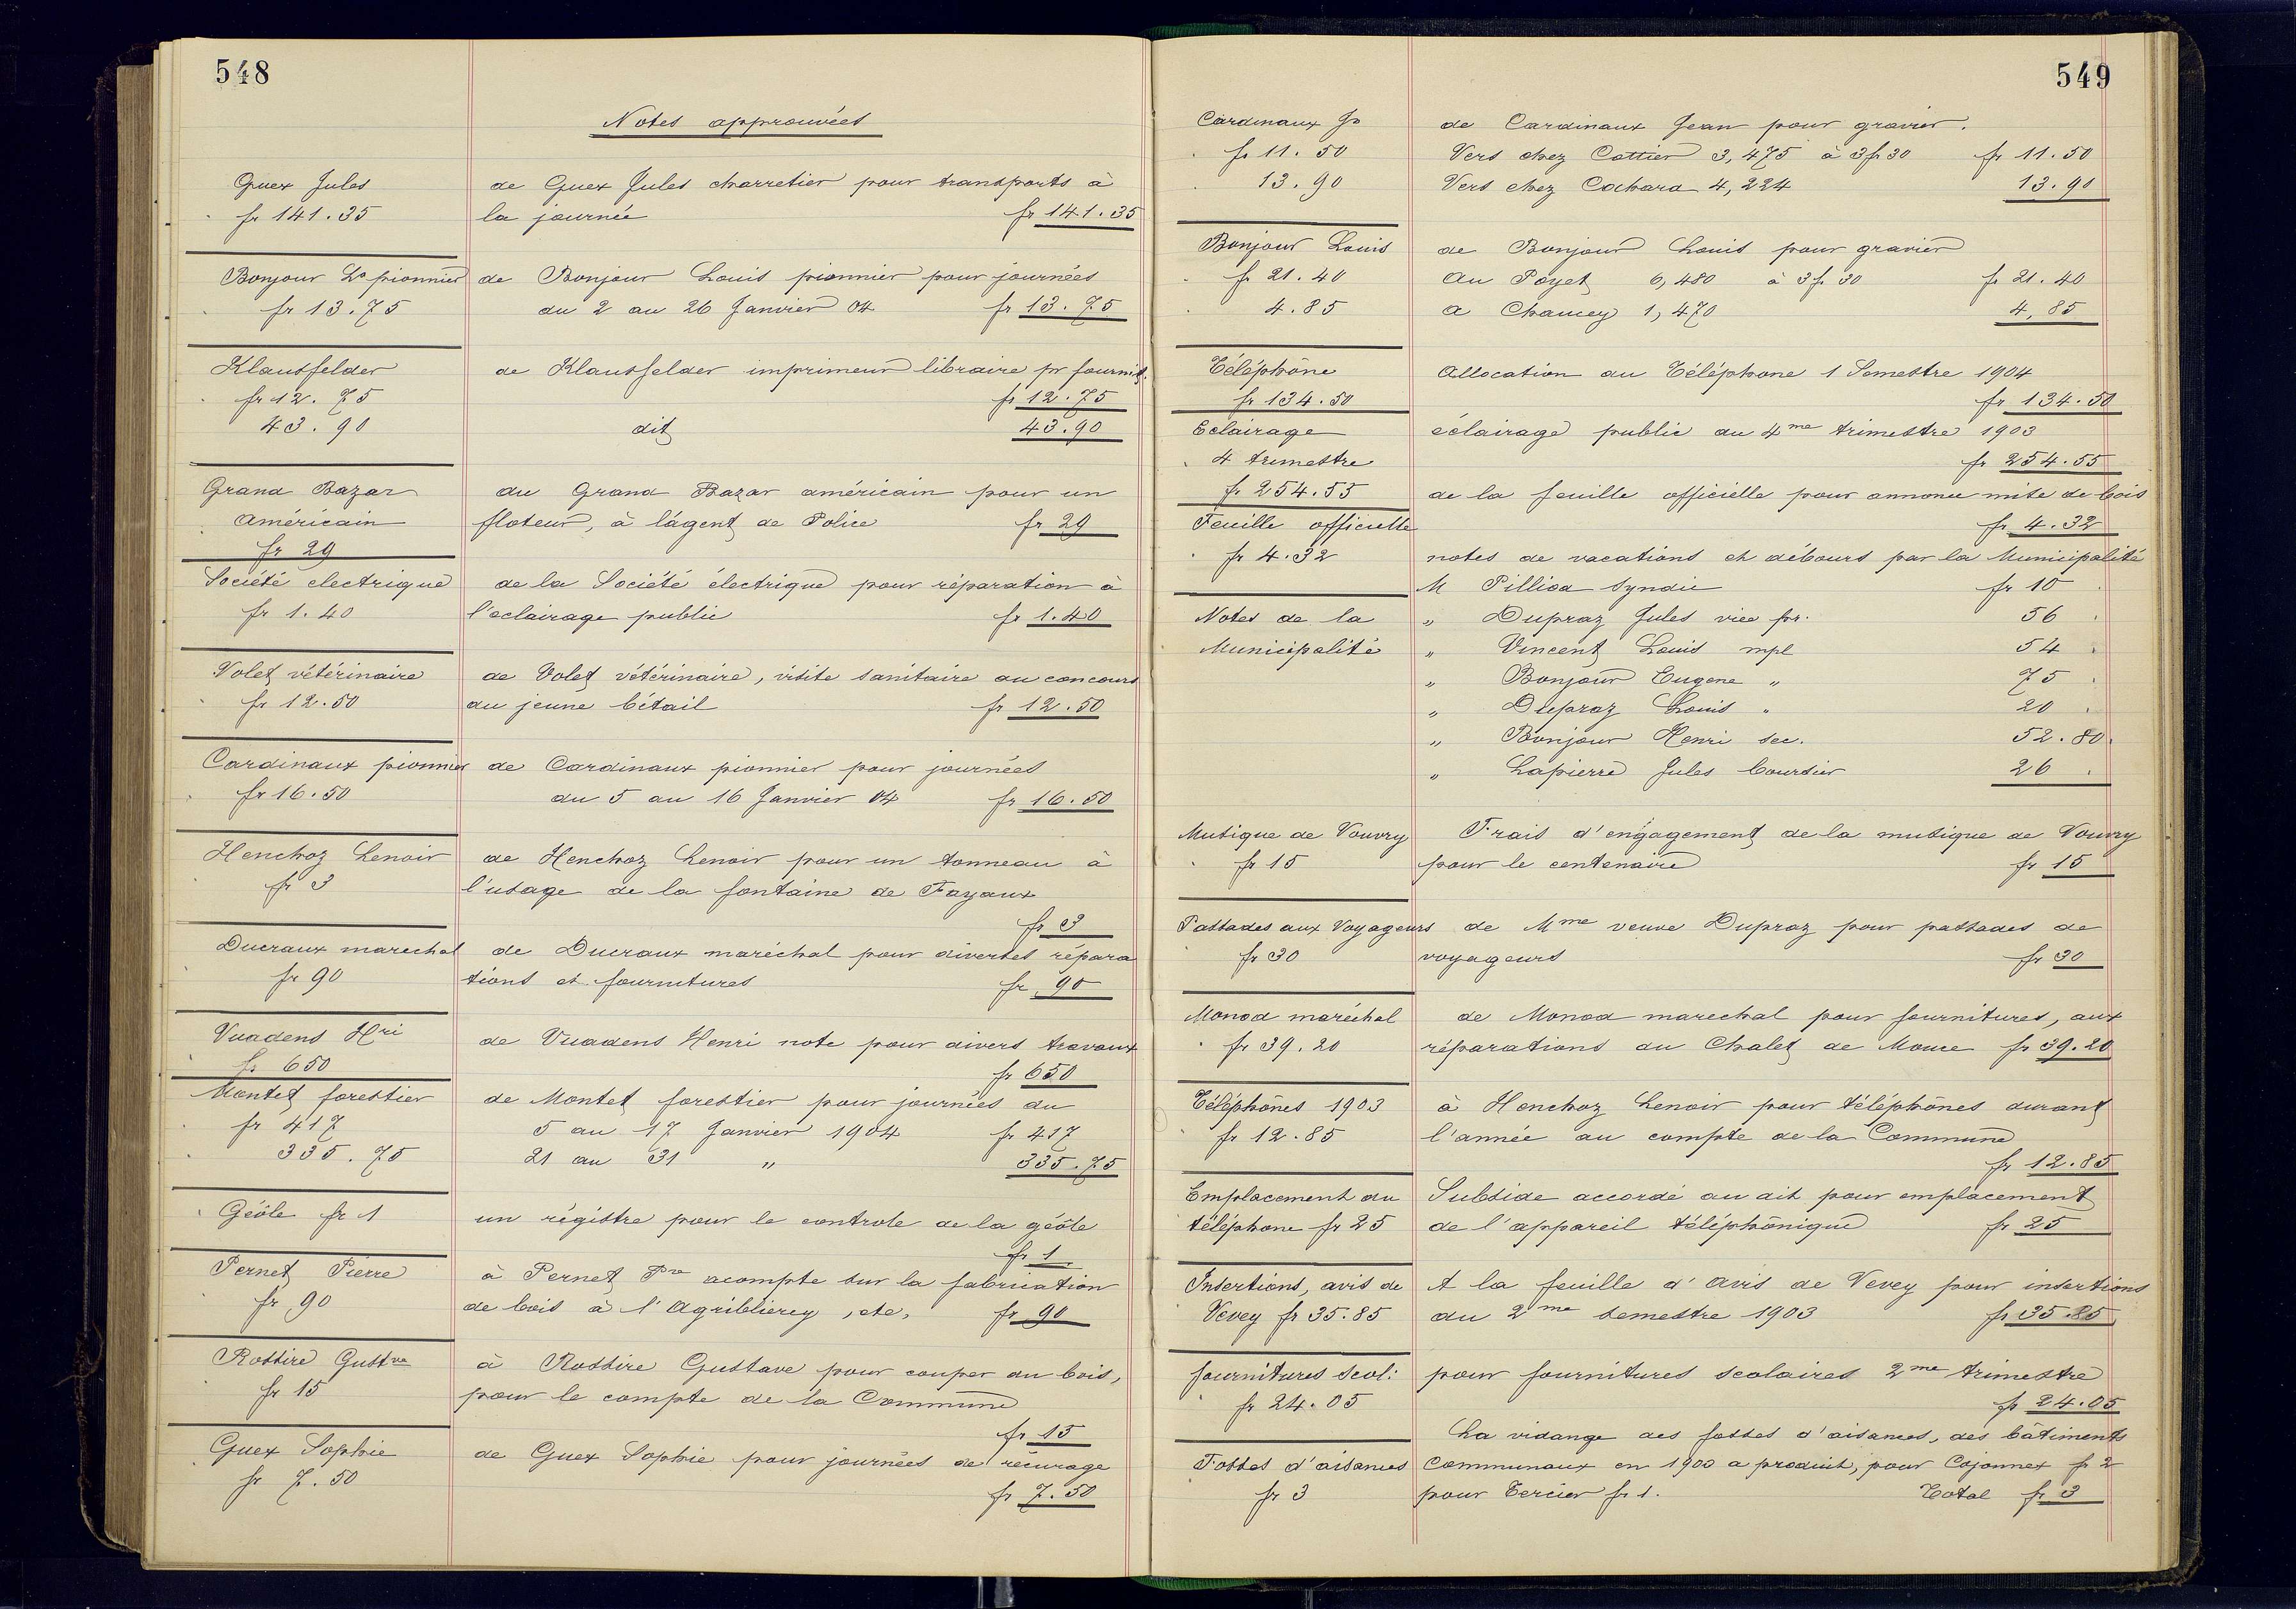 548
Notes approuvées
Guex Jules
fr 141.35
de Guex Jules charretier pour transports à
la journée fr 141.35
Bonjour Ls pionnier
fr 13.75
de Bonjour Louis pionnier pour journées
du 2 au 26 Janvier 04 fr 13.75
Klausfelder
fr 12.75
43.90
de Klausfelder imprimeur libraire pr fournit.
fr 12.75
dit 43.90
Grand Bazar
Américain
fr 29
du Grand Bazar américain pour un
floteur, à l'agent de Police fr 29
Société electrique
fr 1.40
de la Société électrique pour réparation à
l'eclairage public fr 1.40
Volet vétérinaire
fr 12.50
de Volet vétérinaire, visite sanitaire au concours
du jeune bétail fr 12.50
Cardinaux pionnier
fr 16.50
de Cardinaux pionnier pour journées
du 5 au 16 Janvier 04 fr 16.50
Henchoz Lenoir
fr 3
de Henchoz Lenoir pour un tonneau à
l'usage de la fontaine de Fayaux
fr 3
Ducraux marechal
fr 90
de Ducraux maréchal pour diverses répara
tions et fournitures fr 90
Vuadens Hri
fr 650
de Vuadens Henri note pour divers travaux
fr 650
Montet forestier
fr 417
335.75
de Montet forestier pour journées du
5 au 17 Janvier 1904 fr 417
21 au 31 " 335.75
Géôle fr 1
un régistre pour le controle de la géôle
fr 1
Pernet Pierre
fr 90
à Pernet Pre acompte sur la fabrication
de bois à l'Agriblierey, etc. fr 90
Rossire Gustve
fr 15
à Rossire Gustave pour couper du bois,
pour le compte de la Commune
fr 15
Guex Sophie
fr 7.50
de Guex Sophie pour journées de récurage
fr 7.50
549
Cardinaux Jn
fr 11.50
13.90
de Cardinaux Jean pour gravier.
Vers chez Cottier 3,475 à 3 fr 30 fr 11.50
Vers chez Cachara 4,224 13.90
Bonjour Louis
fr 21.40
4.85
de Bonjour Louis pour gravier
Au Poyet 6,480 à 3 fr 30 fr 21.40
a Chaucey 1,470 4,85
Téléphône
fr 134.50
Allocation au Téléphone 1 Semestre 1904
fr 134.50
Eclairage
4 trimestre
fr 254.55
éclairage public du 4me trimestre 1903
fr 254.55
Feuille officielle
fr 4.32
de la feuille officielle pour annonce mise de bois
fr 4.32
Notes de la
Municipalité
notes de vacations et débours par la Municipalité
M Pilliod Syndic fr 10
" Dupraz Jules vice pr. 56
" Vincent Louis mpl 54
" Bonjour Eugene " 75
" Dupraz Louis " 20
" Bonjour Henri sec. 52.80
" Lapierre Jules boursier 26
Musique de Vouvry
fr 15
Frais d'engagement de la musique de Vouvry
pour le centenaire fr 15
Passades aux Voyageurs
fr 30
de Mme veuve Dupraz pour passades de
voyageurs fr 30
Monod maréchal
fr 39.20
de Monod marechal pour fournitures, aux
réparations du Chalet de Mouse fr 39.20
Téléphônes 1903
fr 12.85
à Henchoz Lenoir pour téléphônes durant
l'année au compte de la Commune
fr 12.85
Emplacement du
téléphone fr 25
Subside accordé au dit pour emplacement
de l'appareil téléphônique fr 25
Insertions, avis de
Vevey fr 35.85
A la feuille d'Avis de Vevey pour insertions
du 2me semestre 1903 fr 35.85
fournitures scol:
fr 24.05
pour fournitures scolaires 2me trimestre
fr 24.05
Fosses d'aisances
fr 3
La vidange des fosses d'aisances, des bâtiments
Communaux en 1900 a produit, pour Cojonnex fr 2
pour Tercier fr 1. Total fr 3